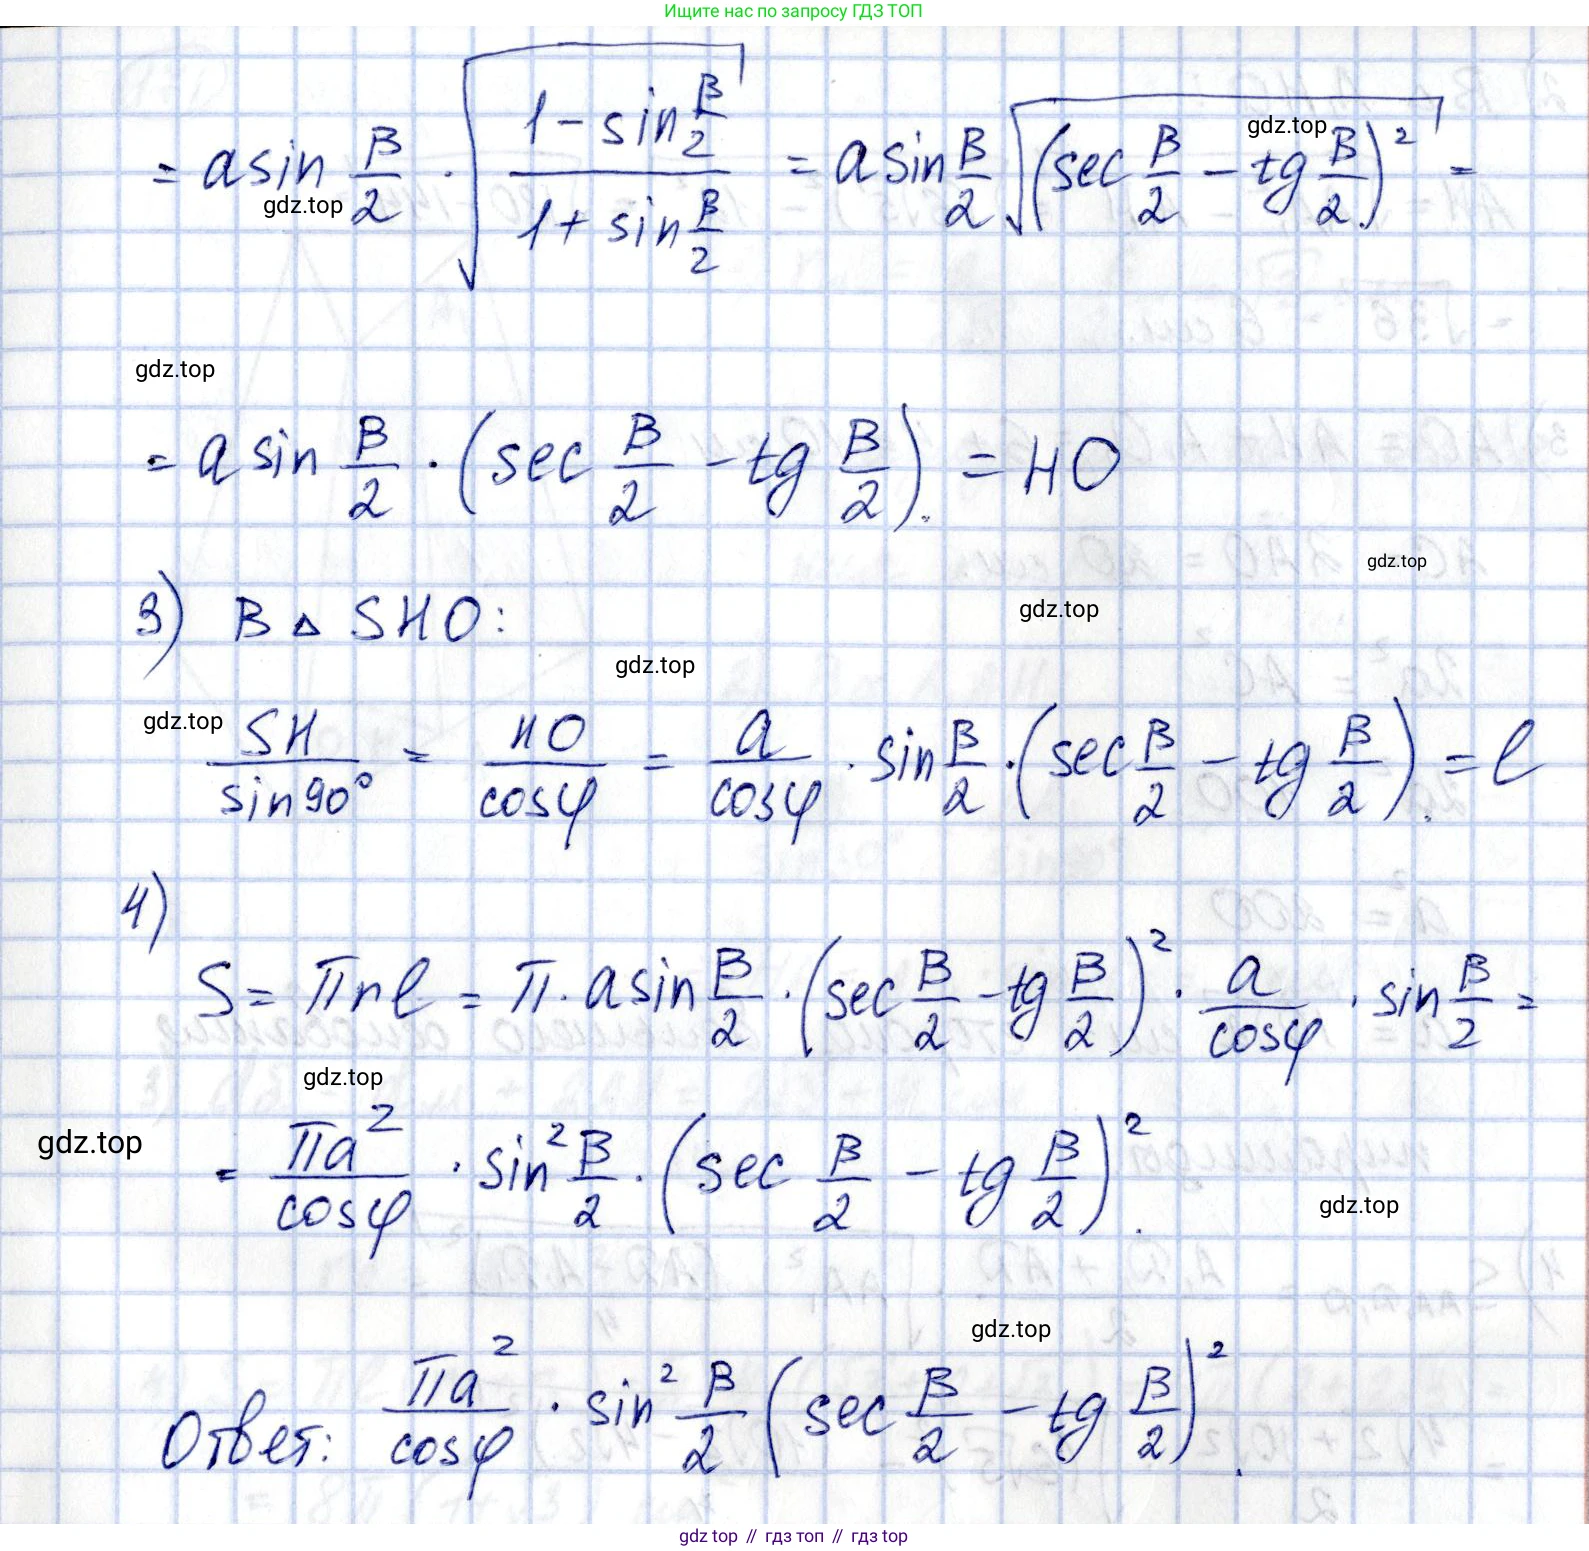 Ищите нас по запросу ГДЗ ТОП
= a sin β/2 · √((1 - sin β/2)/(1 + sin β/2)) = a sin β/2 √((sec β/2 - tg β/2)²) =
gdz.top
gdz.top
gdz.top
= a sin β/2 · (sec β/2 - tg β/2). = HO
gdz.top
3) В △ SHO:
gdz.top
gdz.top
gdz.top
SH/sin90° = HO/cosφ = a/cosφ · sin β/2 · (sec β/2 - tg β/2). = l
4)
S = πrl = π · a sin β/2 · (sec β/2 - tg β/2)² · a/cosφ · sin β/2 =
gdz.top
gdz.top
= πa²/cosφ · sin² β/2 · (sec β/2 - tg β/2)².
gdz.top
gdz.top
Ответ: πa²/cosφ · sin² β/2 (sec β/2 - tg β/2)².
gdz top // гдз топ // гдз top